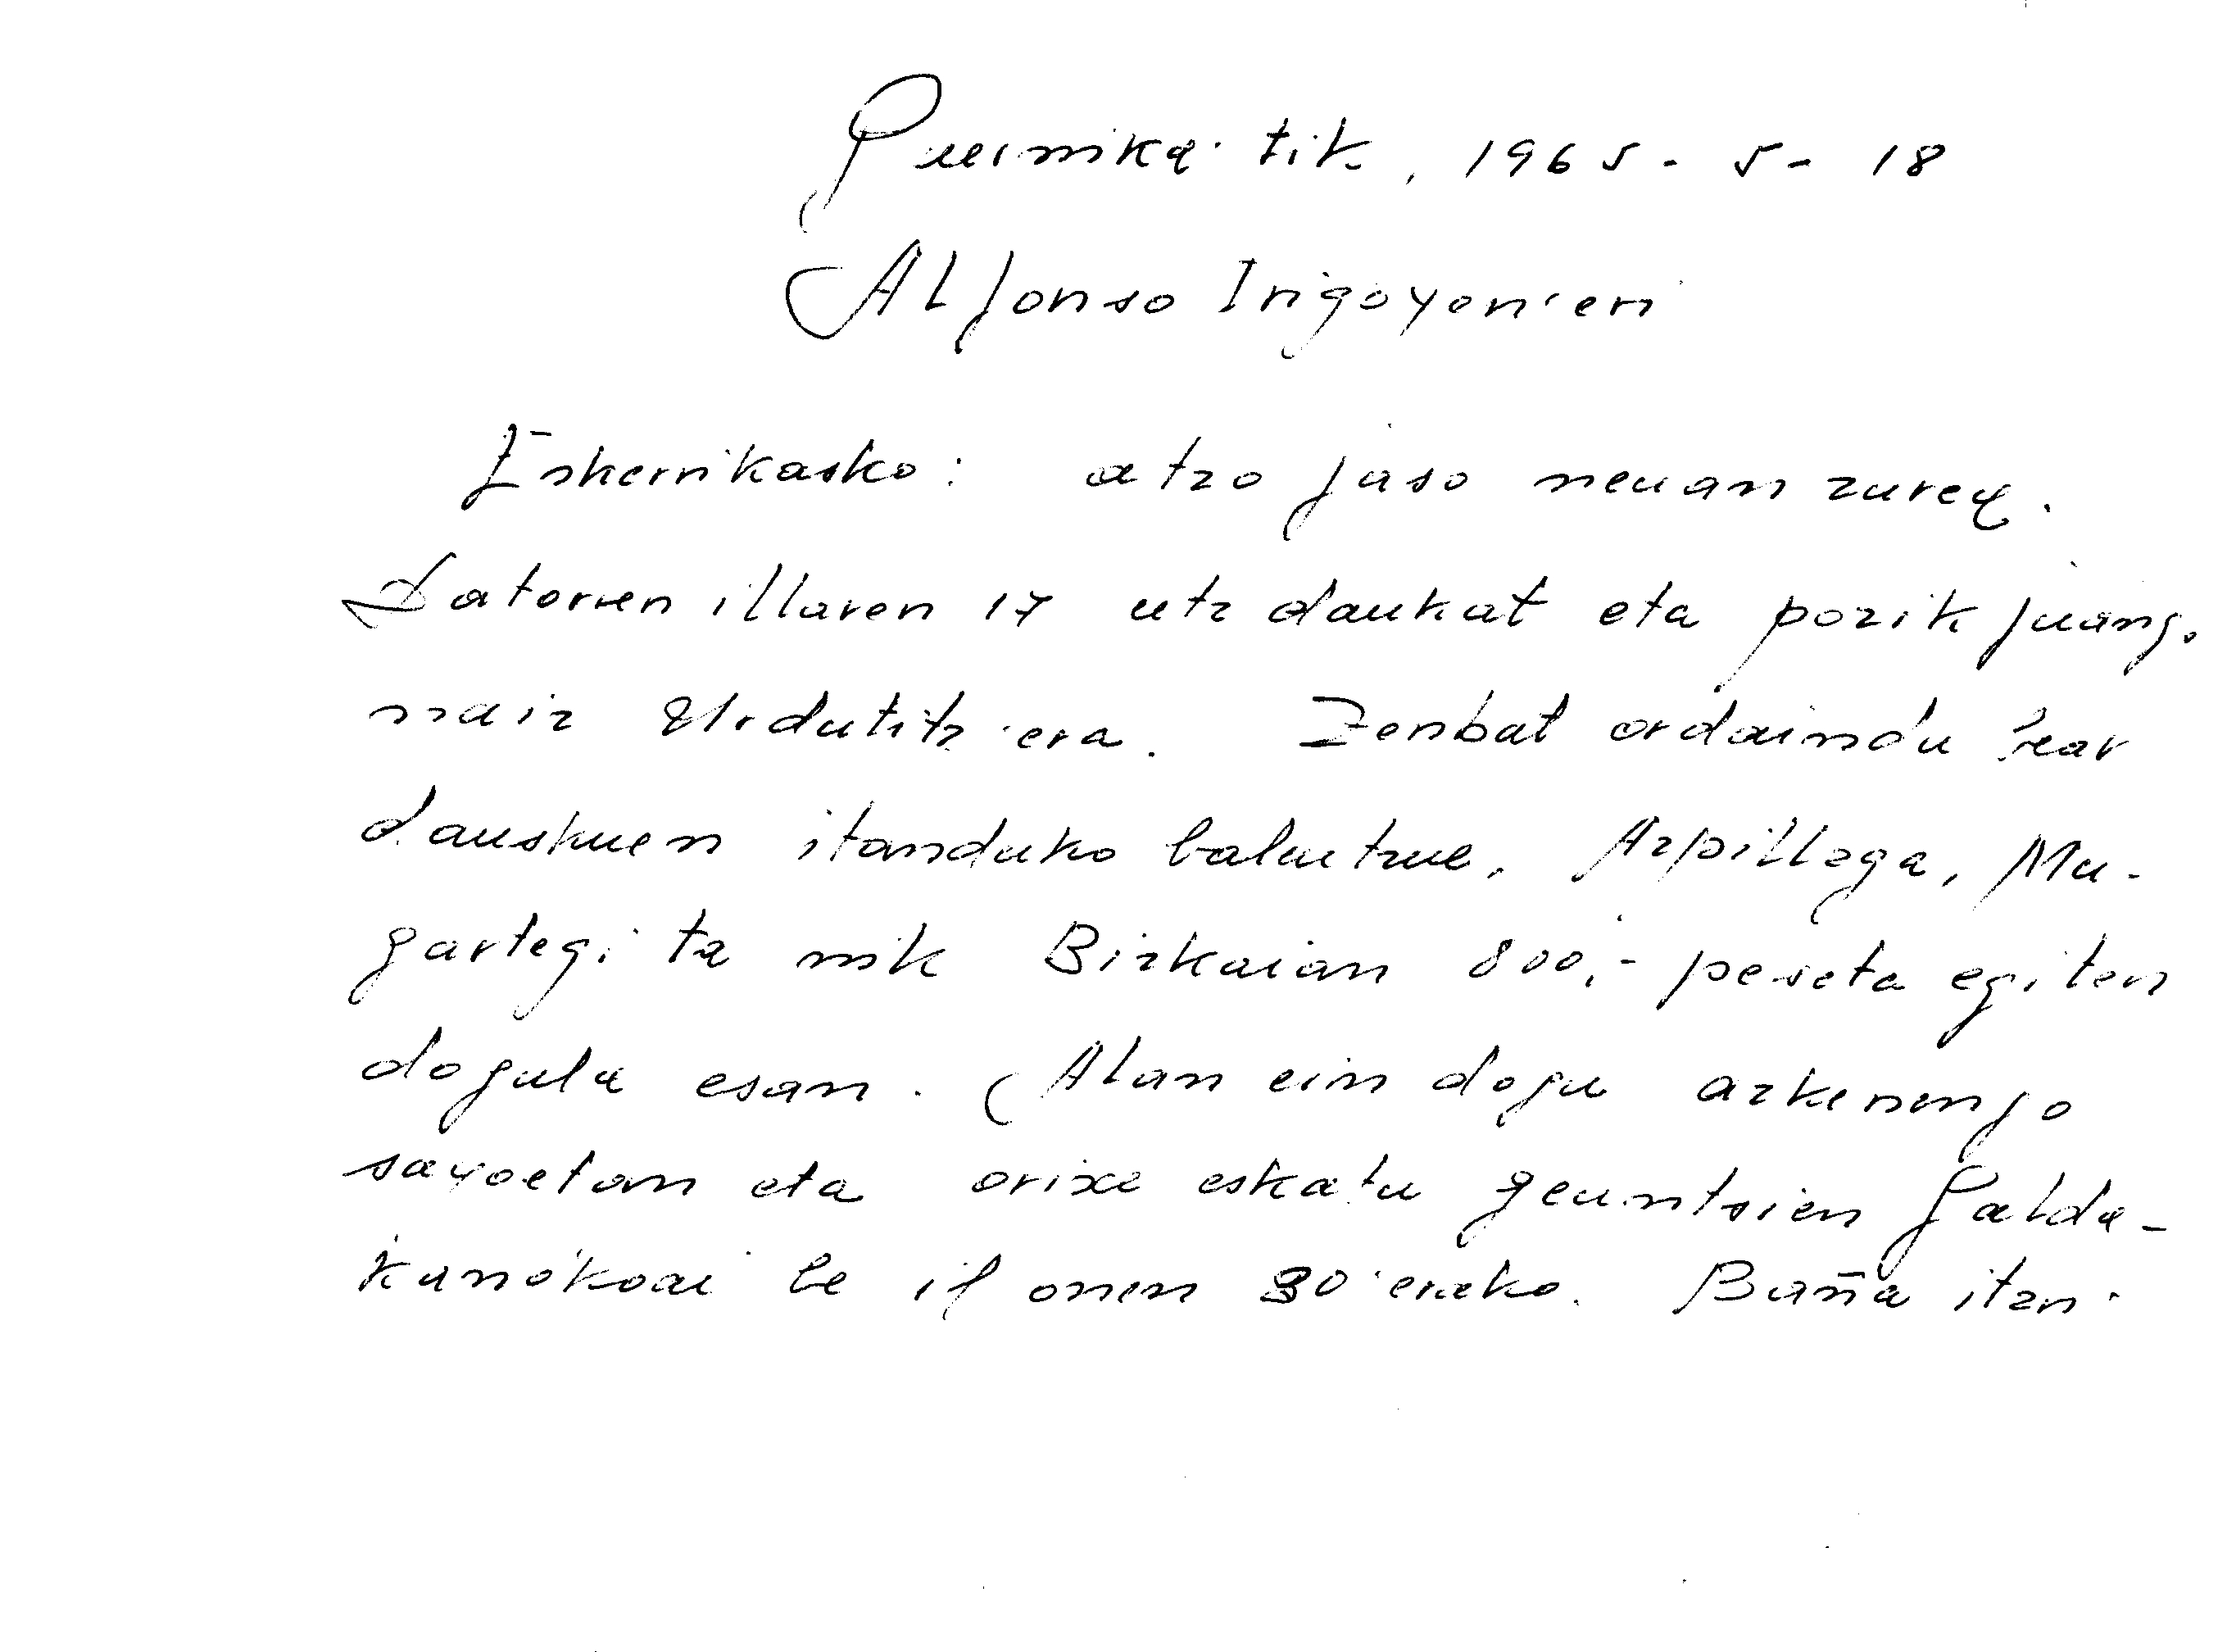 Guernika'tik, 1965-5-18
Alfonso Irigoyen'eri
Eskerrikasko: atzo jaso neuan zurea.
Datorren illaren 17 utz daukat eta pozik juango
naiz Urdulitz'era. Zenbat ordaindu bear
dauskuen itanduko baleutzue, Azpillaga, Mu-
gartegi ta nik Bizkaian 800,- peseta egiten
dogula esan. (Alan ein dogu azkenengo
sayoetan eta orixe eskatu geuntsien Galda-
kanókoai be il onen 30'erako. Baña itzn-